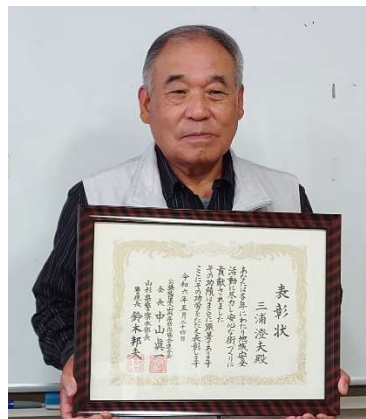 表彰状
三浦澄夫殿
あなたは多年にわたり地域安全
活動に尽力し安心な街づくりに
貢献されました
その功績はまことに顕著であります
ここにその功労をたたえ表彰します
令和六年五月二十四日
会長 中山眞一
山形県警察本部長
警視長 鈴木邦夫